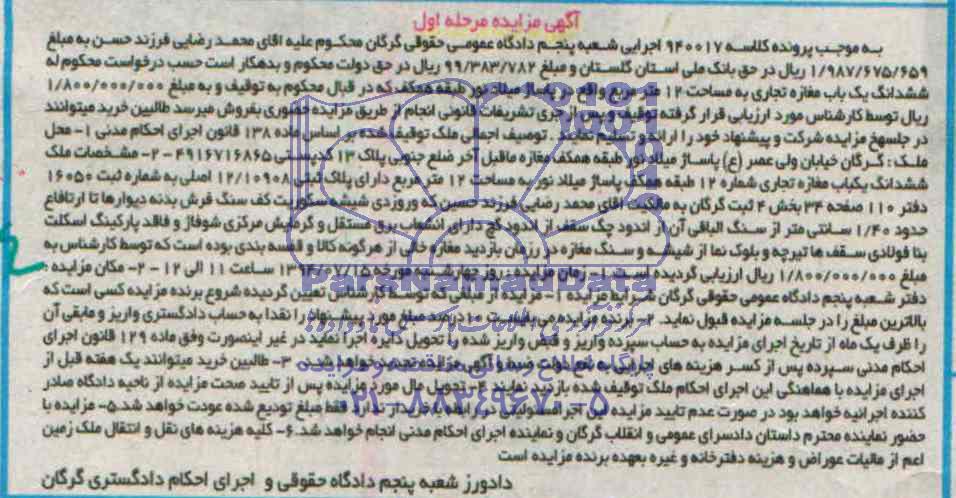 آگهی مزایده مرحله اول
به موجب پرونده کلاسه ۹۴۰۰۱۷ اجرایی شعبه پنجم دادگاه عمومی حقوقی گرگان محکوم علیه اقای محمد رضایی فرزند حسن به مبلغ
۱/۹۸۷/۶۷۵/۶۵۹ ریال در حق بانک ملی استان گلستان و مبلغ ۹۹/۳۸۳/۷۸۲ ریال در حق دولت محکوم و بدهکار است حسب درخواست محکوم له
ششدانگ یک باب مغازه تجاری به مساحت ۱۲ متر مربع واقع در پاساژ میلاد نور طبقه همکف که در قبال محکوم به توقیف و به مبلغ ۱/۸۰۰/۰۰۰/۰۰۰
ریال توسط کارشناس مورد ارزیابی قرار گرفته توقیف و پس از جری تشریفات قانونی انجام از طریق مزایده حضوری بفروش میرسد طالبین خرید میتوانند
در جلسه مزایده شرکت و پیشنهاد خود را ارائه و تسلیم نمایند. توصیف اجمالی ملک توقیف شده بر اساس ماده ۱۳۸ قانون اجرای احکام مدنی ۱- محل
ملک : گرگان خیابان ولی عصر (ع) پاساژ میلاد نور طبقه همکف مغازه ماقبل آخر ضلع جنوبی پلاک ۱۳ کدپستی ۴۹۱۶۷۱۶۸۶۵ - ۲- مشخصات ملک
ششدانگ یکباب مغازه تجاری شماره ۱۲ طبقه همکف پاساژ میلاد نور به مساحت ۱۲ متر مربع دارای پلاک ثبتی ۱۲/۱۰۹۰۸ اصلی به شماره ثبت ۱۶۰۵۰
دفتر ۱۱۰ صفحه ۳۴ بخش ۴ ثبت گرگان به مالکیت اقای محمد رضایی فرزند حسن که ورودی شیشه سکوریت کف سنگ فرش بدنه دیوارها تا ارتفاع
حدود ۱/۴۰ سانتی متر از سنگ الباقی آن از اندود چک سقف از اندود گچ دارای انشعاب برق مستقل و گرمایش مرکزی شوفاژ و فاقد پارکینگ اسکلت
بنا فولادی سقف ها تیرچه و بلوک نما از شیشه و سنگ مغازه در زمان بازدید مغازه خالی از هرگونه کالا و قفسه بندی بوده است که توسط کارشناس به
مبلغ ۱/۸۰۰/۰۰۰/۰۰۰ ریال ارزیابی گردیده است. ۱- زمان مزایده : روز چهارشنبه مورخه ۱۳۹۴/۰۷/۱۵ ساعت ۱۱ الی ۱۲ - ۲- مکان مزایده :
دفتر شعبه پنجم دادگاه عمومی حقوقی گرگان شرایط مزایده ۱- مزایده از مبلغی که توسط کارشناس تعیین گردیده شروع برنده مزایده کسی است که
بالاترین مبلغ را در جلسه مزایده قبول نماید. ۲- برنده مزایده می بایست ۱۰درصد مبلغ مورد پیشنهاد را نقدا به حساب دادگستری واریز و مابقی آن
را ظرف یک ماه از تاریخ اجرای مزایده به حساب سپرده واریز و قبض واریز شده را تحویل دایره اجرا نماید در غیر اینصورت وفق ماده ۱۲۹ قانون اجرای
احکام مدنی سپرده پس از کسر هزینه های اجرایی به نفع دولت ضبط و آگهی مزایده تجدید خواهد شد. ۳- طالبین خرید میتوانند یک هفته قبل از
اجرای مزایده با هماهنگی این اجرای احکام ملک توقیف شده بازدید نمایند ۴- تحویل مال مورد مزایده پس از تایید صحت مزایده از ناحیه دادگاه صادر
کننده اجرائیه خواهد بود در صورت عدم تایید مزایده این اجرا مسئولیتی در رابطه با خریدار ندارد فقط مبلغ تودیع شده عودت خواهد شد. ۵- مزایده با
حضور نماینده محترم داستان دادسرای عمومی و انقلاب گرگان و نماینده اجرای احکام مدنی انجام خواهد شد. ۶- کلیه هزینه های نقل و انتقال ملک زمین
اعم از مالیات عوراض و هزینه دفترخانه و غیره بعهده برنده مزایده است
دادورز شعبه پنجم دادگاه حقوقی و اجرای احکام دادگستری گرگان
ParsNamadData
پایگاه اطلاع رسانی مناقصه و مزایده
۰۲۱-۸۸۳۴۹۶۷۰-۵